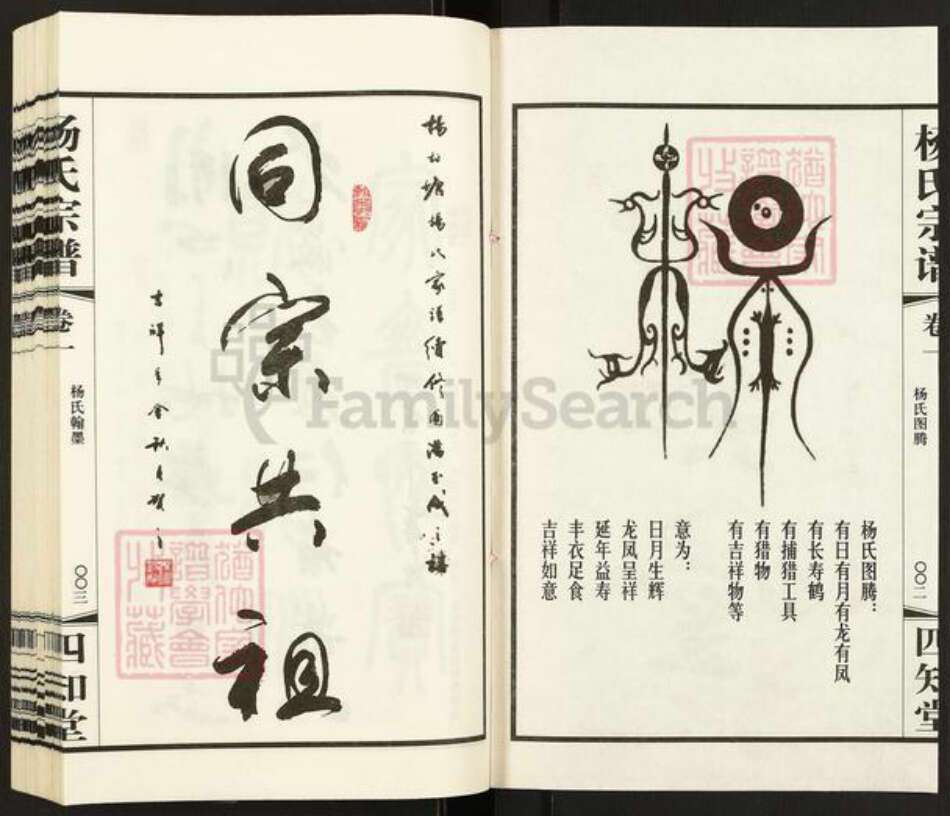 杨氏宗谱
卷一
杨氏图腾
〇〇二
四知堂
杨氏图腾：
有日有月有龙有凤
有长寿鹤
有捕猎工具
有猎物
有吉祥物等
意为：
日月生辉
龙凤呈祥
延年益寿
丰衣足食
吉祥如意
同宗共祖
杨氏宗谱
卷一
杨氏翰墨
〇〇三
四知堂
猶他家譜學會收藏
FamilySearch